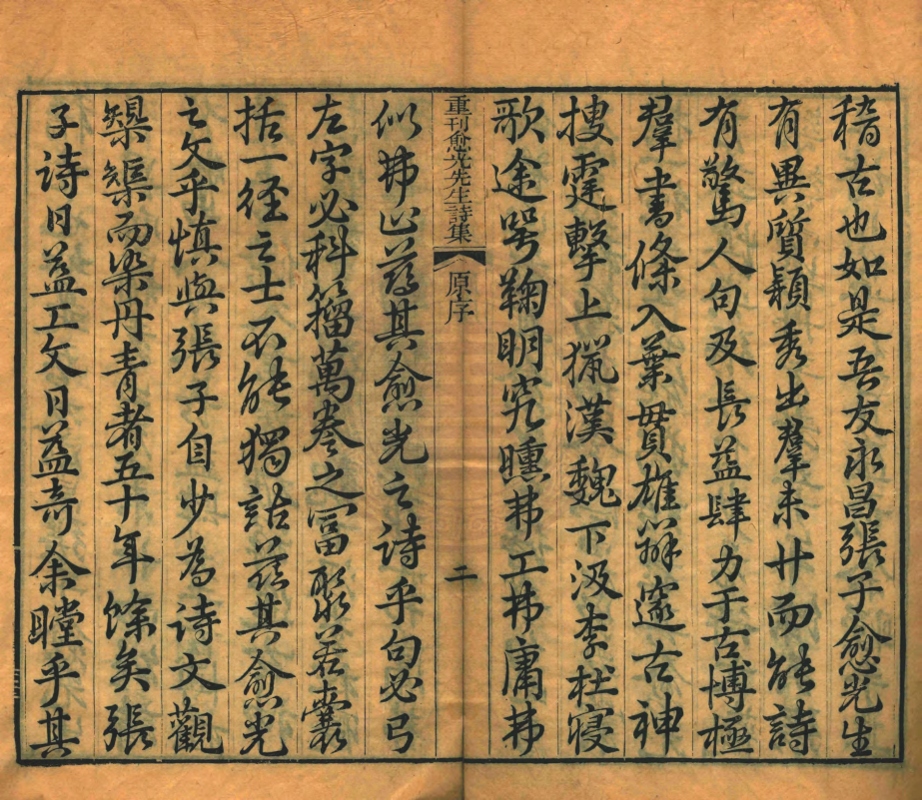 稽古也如是吾友永昌張子愈光生
有異質穎秀出羣未廿而能詩
有驚人句及長益肆力于古博極
羣書條入葉貫雄辭邃古神
搜霆擊上獵漢魏下汲李杜寝
歌途咢鞠明究曛弗工弗庸弗
重刊愈光先生詩集
原序
二
似弗止茲其愈光之詩乎句必弓
左字必科籀萬卷之冨聚若囊
括一经之士不能獨詁茲其愈光
之文乎慎與張子自少為詩文觀
槼榘而染丹青者五十年餘矣張
子詩日益工文日益奇余瞠乎其